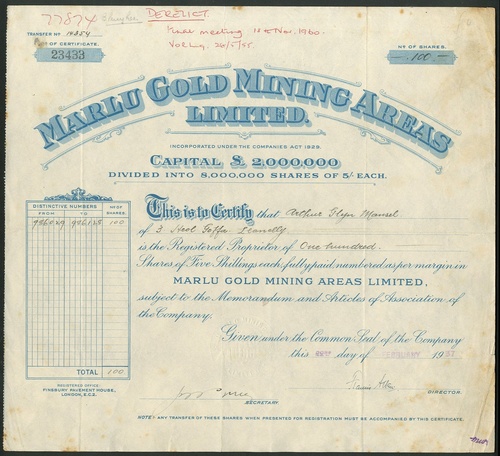 77874
DERELICT.
TRANSFER No 14354
Final meeting 14 Nov. 1960.
Vol Liq. 26/5/55
No OF CERTIFICATE.
23453
No OF SHARES.
100
MARLU GOLD MINING AREAS
LIMITED.
INCORPORATED UNDER THE COMPANIES ACT 1929.
CAPITAL £ 2,000,000
DIVIDED INTO 8,000,000 SHARES OF 5/- EACH.
DISTINCTIVE NUMBERS No OF SHARES.
FROM TO
100
TOTAL 100
REGISTERED OFFICE
FINSBURY PAVEMENT HOUSE,
LONDON, E.C.2.
This is to Certify that Arthur Mansel
of 3. Llanelly
is the Registered Proprietor of One hundred
Shares of Five Shillings each, fully paid, numbered as per margin in
MARLU GOLD MINING AREAS LIMITED,
subject to the Memorandum and Articles of Association of
the Company.
Given under the Common Seal of the Company
this day of FEBRUARY 19
SECRETARY.
DIRECTOR.
NOTE: ANY TRANSFER OF THESE SHARES WHEN PRESENTED FOR REGISTRATION MUST BE ACCOMPANIED BY THIS CERTIFICATE.